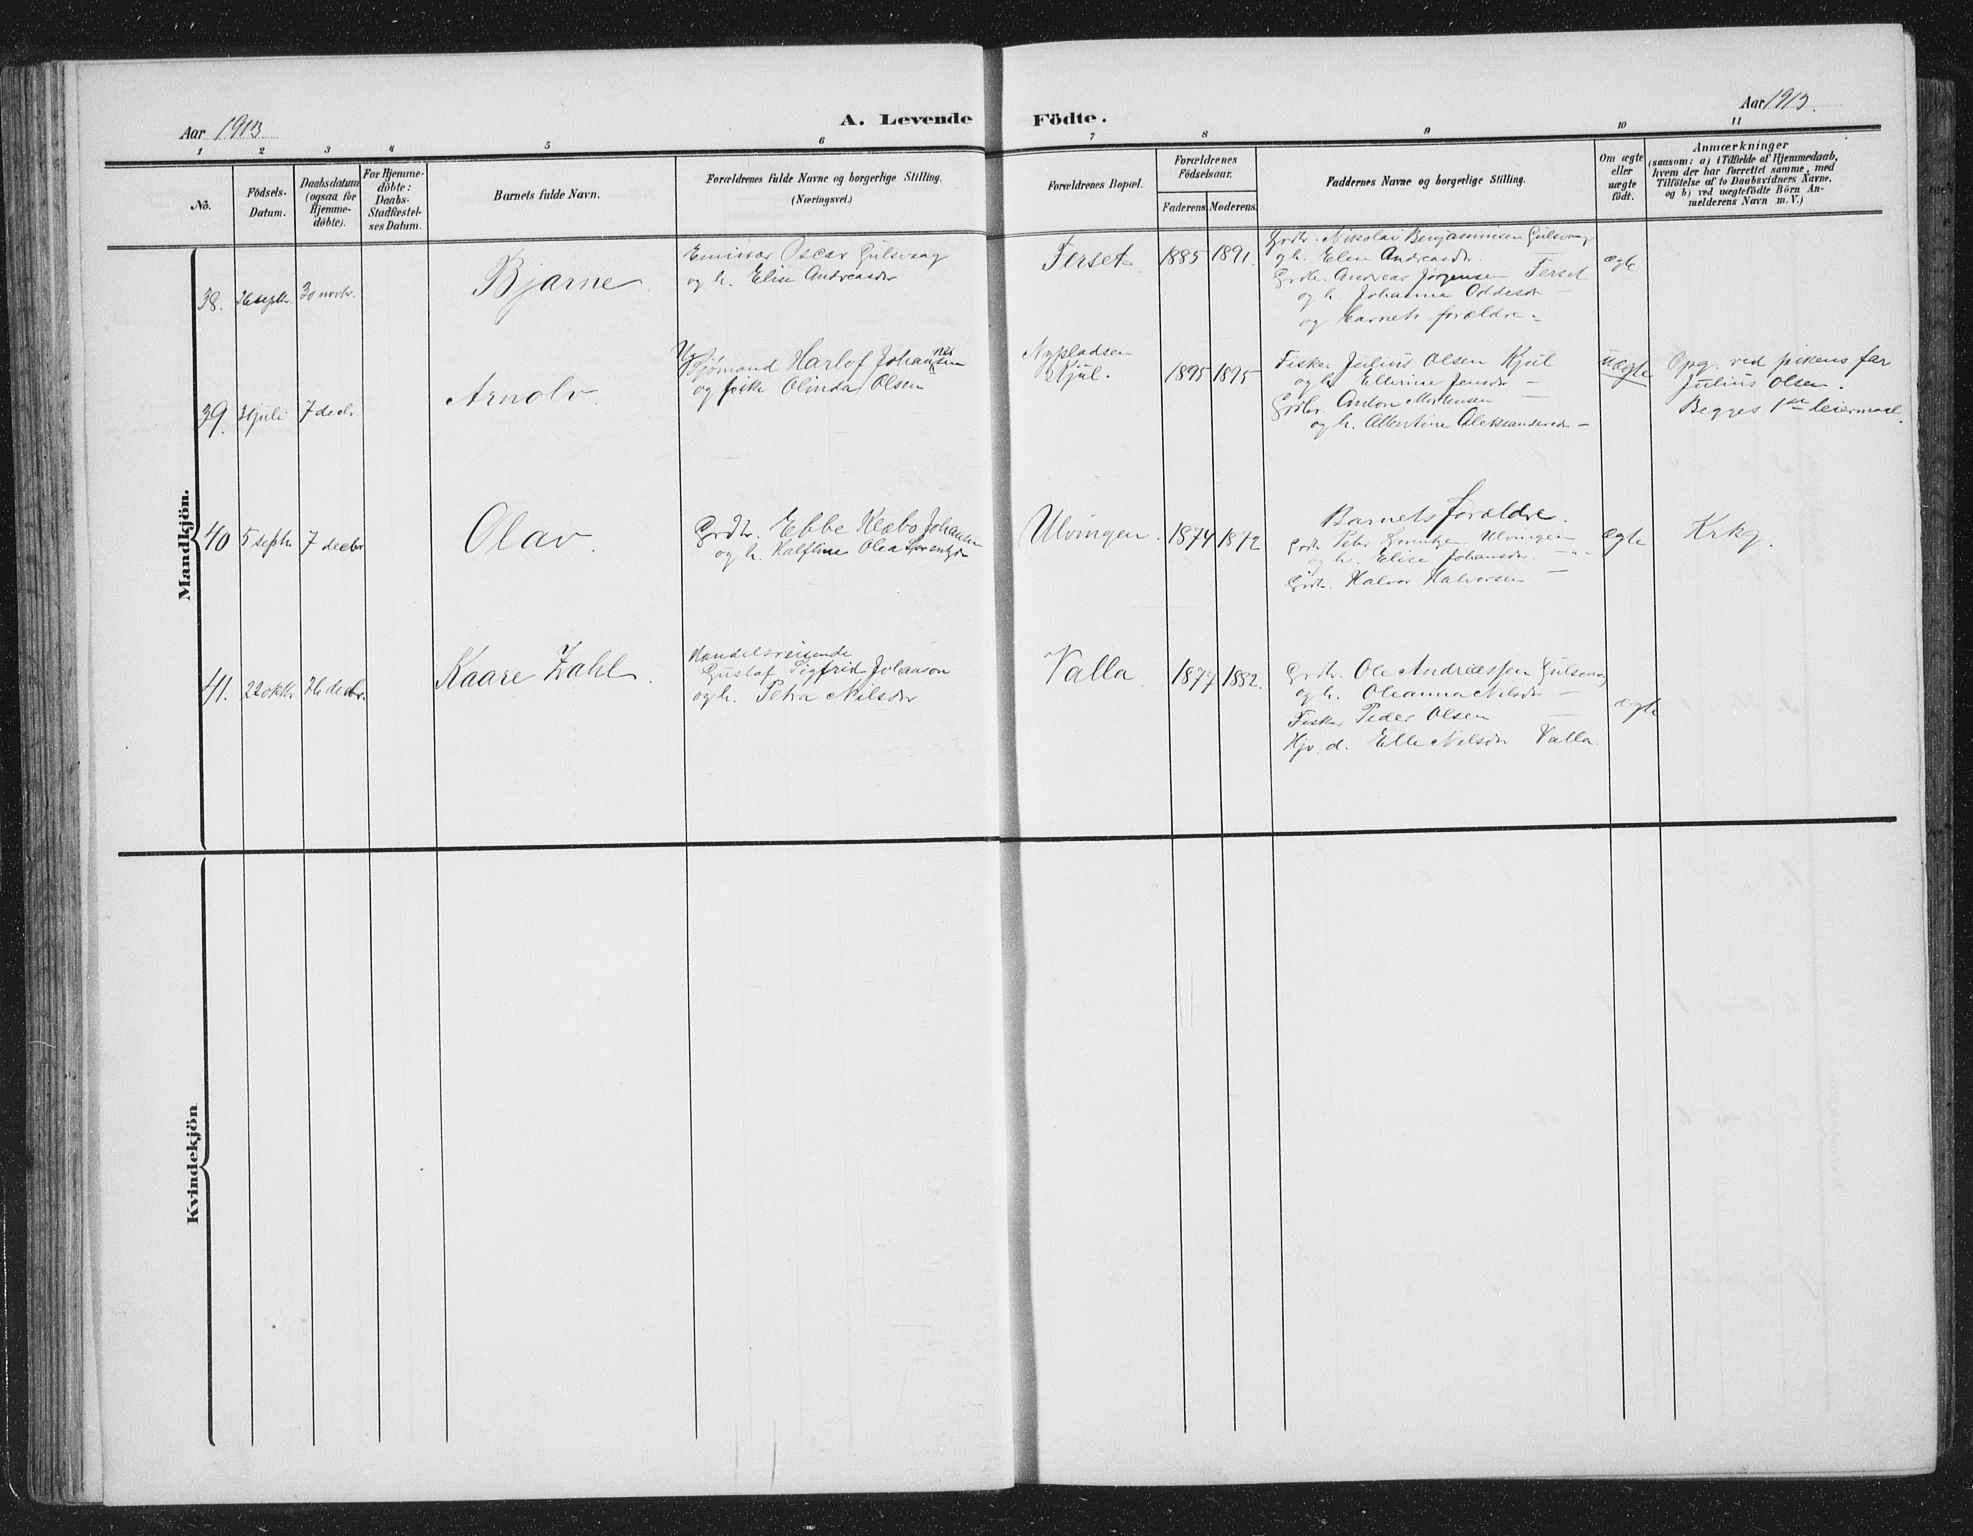 Aar 1913
A. Levende Födte.
Aar 1913.
1 2 3 4 5 6 7 8 9 10 11
No.
Födsels-
Datum.
Daabsdatum
(ogsaa for
Hjemme-
döbte).
For Hjemme-
döbte:
Daabs-
Stadfæstel-
ses Datum.
Barnets fulde Navn.
Forældrenes fulde Navne og borgerlige Stilling.
(Næringsvei.)
Forældrenes Bopæl.
Forældrenes
Födselsaar.
Faderens. Moderens.
Faddernes Navne og borgerlige Stilling.
Om ægte
eller
uægte
födt.
Anmærkninger
(saasom: a) i Tilfælde af Hjemmedaab,
hvem der har forrettet samme, med
Tilföielse af to Daabsvidners Navne.
og b) ved uægtefödte Börn An-
melderens Navn m. V.)
Mandkjön.
38. 26 septbr. 30 novbr.
Bjarne
Emissær Oscar Gulsvaag
og h. Elise Andreasdr
Ferset
1885 1891.
Grdbr. Nikolai Benjaminsen Gulsvaag
og h. Elen Andreasdr. —
Grdbr. Andreas Jörgensen Ferset
og h. Johanna Oddesdr —
og barnets forældre. —
ægte
39. 31 juli 7 decbr.
Arnolv.
Ug. Sjömand Harlof Johannessen
og pike Olinda Olsen
Nypladsen
Kjul.
1895 1895
Fisker Julius Olsen Kjul
og h. Ellerine Jensdr —
Grdbr. Anton Mortensen
og h. Albertine Aleksandersdr —
uægte
Opg. ved pikens far
Julius Olsen.
Begges 1ste leiermaal.
40 5 septbr 7 decbr
Olav.
Grdbr. Ebbe Klæbo Johansen
og h. Halfline Olea Lorentzdr
Ulvingen.
1874 1872
Barnets forældre.
Grdbr Peter Lorentzen Ulvingen
og h. Elise Johansdr. — " —
Grdbr. Halvor Halvorsen —
ægte
Krkg.
41. 22 oktbr 26 decbr.
Kaare Zahl.
Handelsreisende
Gustaf Sigfrid Johanson
og h. Petra Nilsdr
Valla
1877 1882.
Grdbr. Ole Andreassen Gulsvaag
og h. Olianna Nilsdr —
Fisker Peder Olsen —
Hjv. d. Elle Nilsdr Valla.
ægte
Kvindekjön